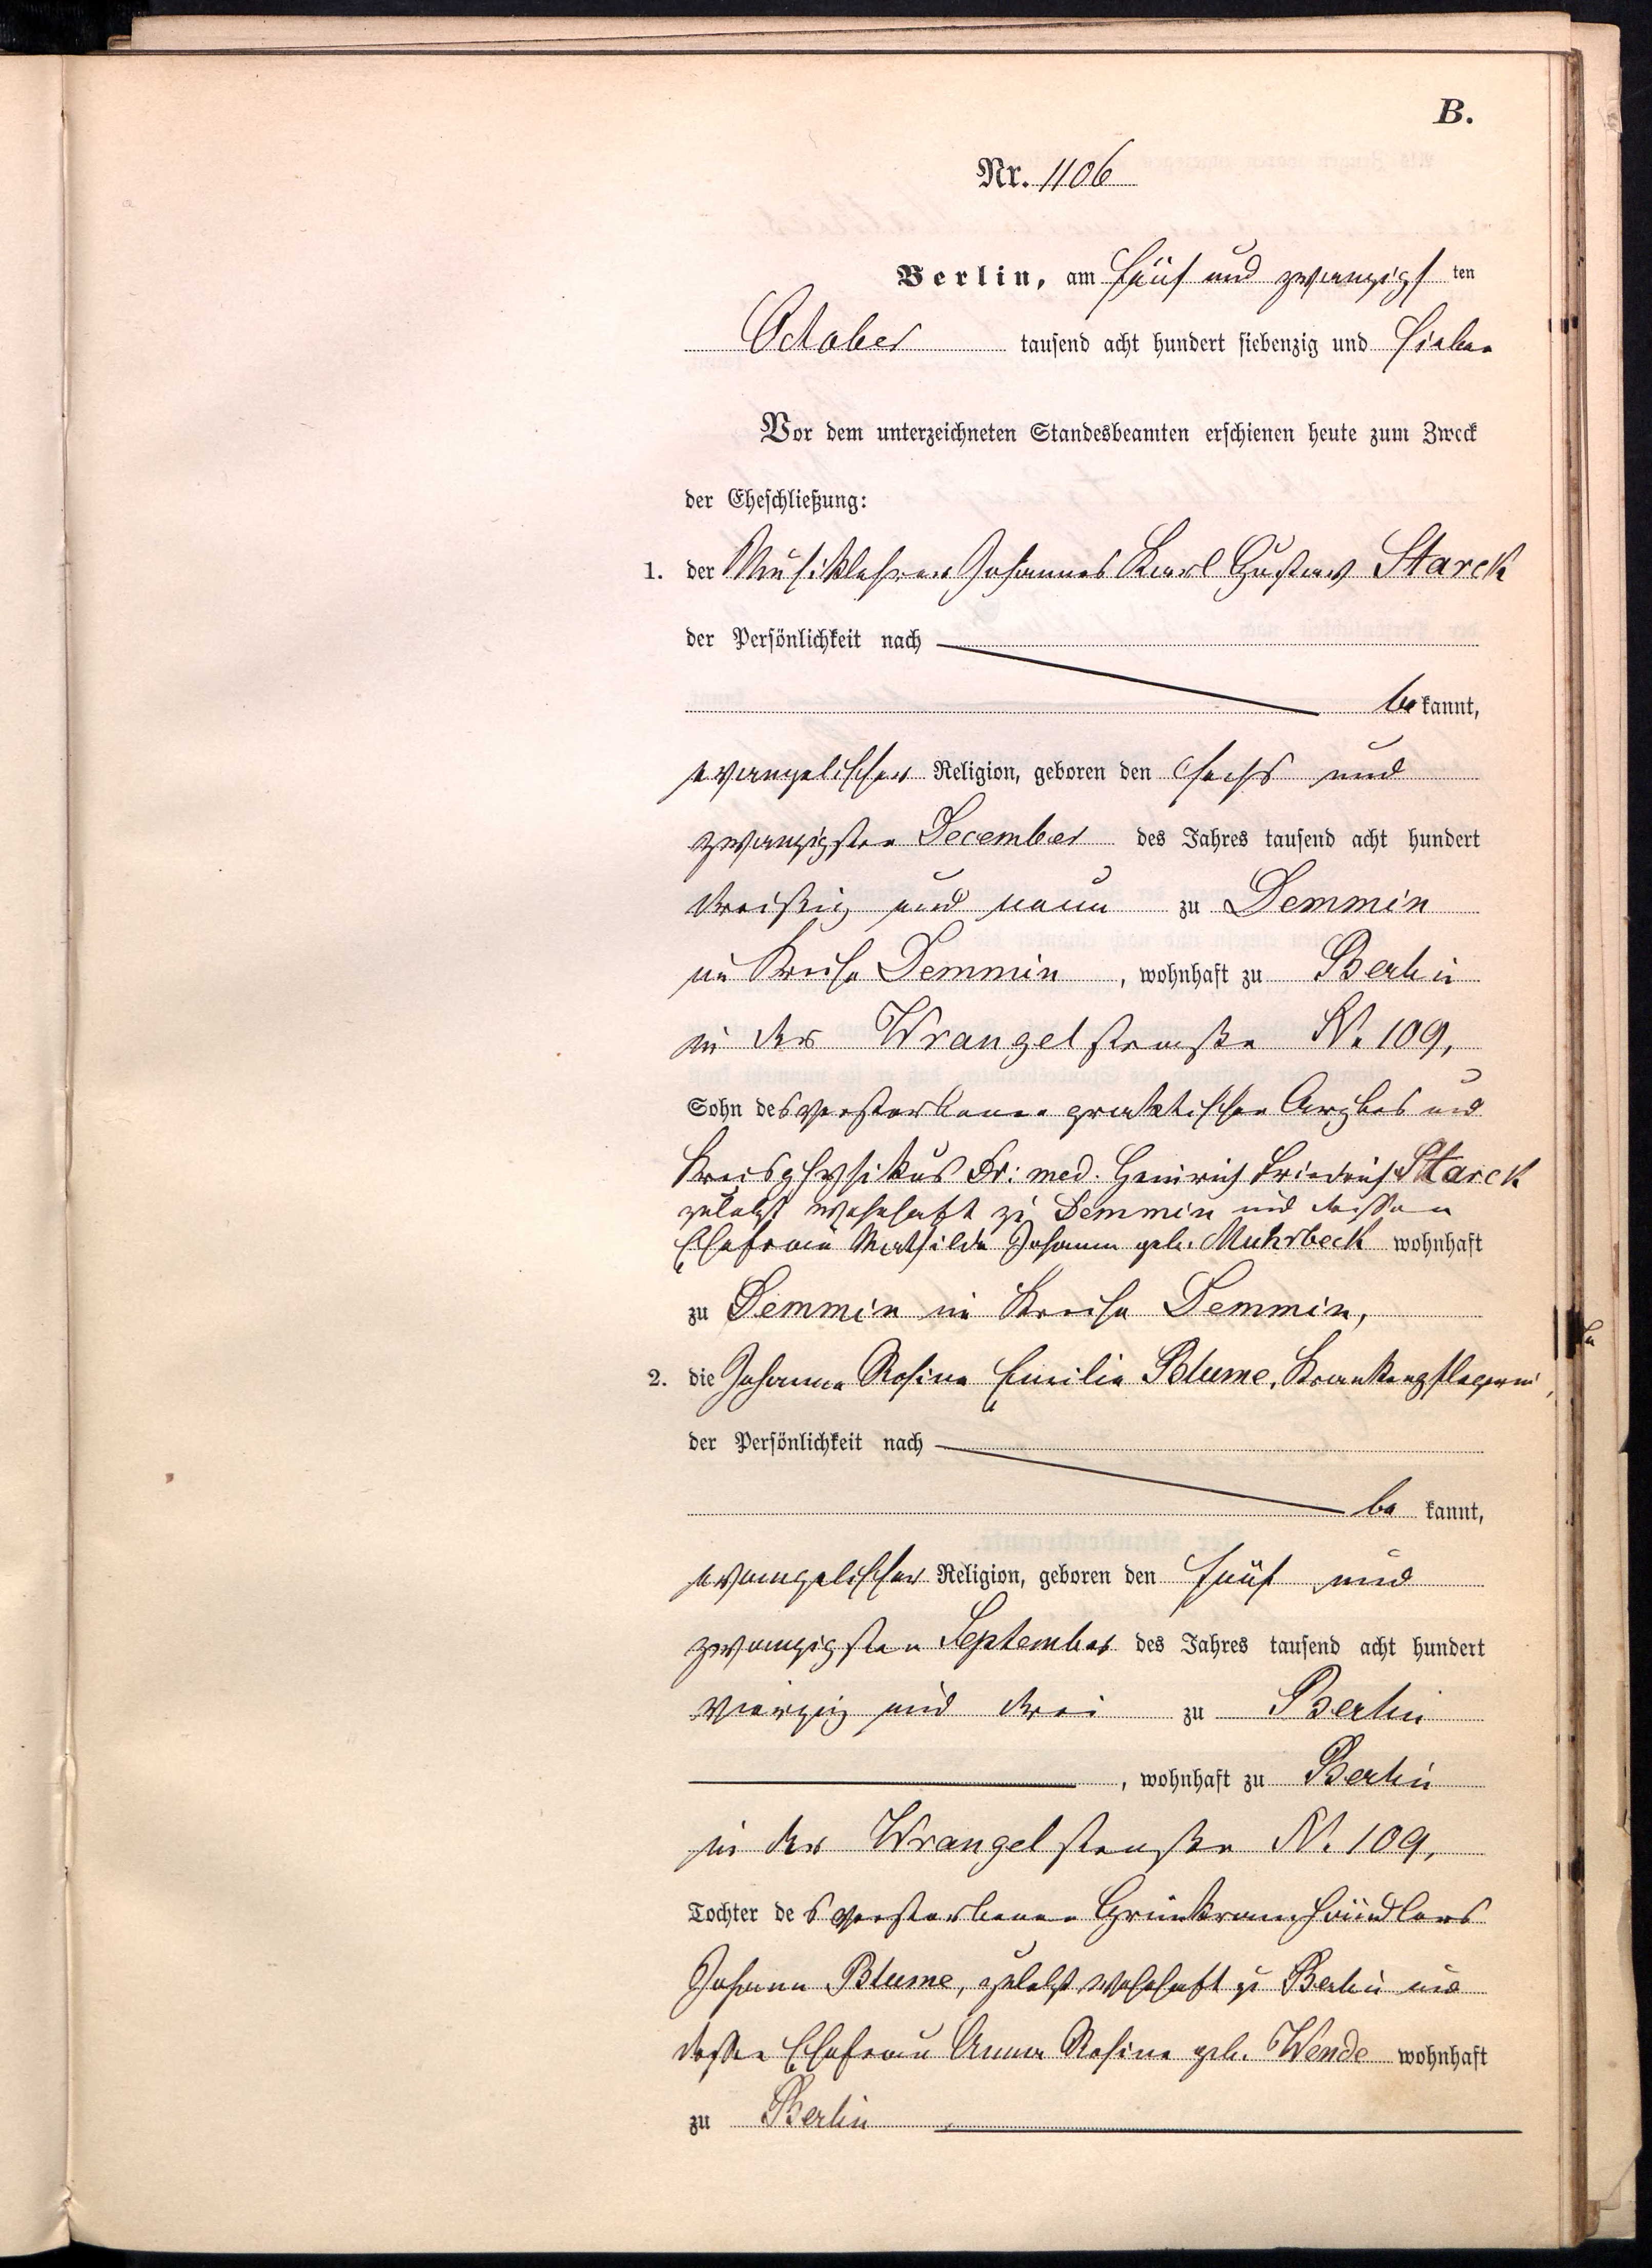 B.
Nr. 1106
Berlin, am fünf und zwanzigsten
October tausend acht hundert siebenzig und sieben
Vor dem unterzeichneten Standesbeamten erschienen heute zum Zweck
der Eheschließung:
1. der Musiklehrer Johannes Karl Gustav Starck
der Persönlichkeit nach
bekannt,
evangelischer Religion, geboren den sechs und
zwanzigsten December des Jahres tausend acht hundert
dreißig und neun zu Demmin
im Kreise Demmin, wohnhaft zu Berlin
in der Wrangelstraße N. 109,
Sohn des verstorbenen praktischen Arztes und
Kreisphysikus Dr: med. Heinrich Friedrich Starck
zuletzt wohnhaft zu Demmin und dessen
Ehefrau Mathilde Johanna geb. Muhrbeck wohnhaft
zu Demmin im Kreise Demmin,
2. die Johanna Rosina Emilie Blume, Krankenpflegerin,
der Persönlichkeit nach
bekannt,
evangelischer Religion, geboren den fünf und
zwanzigsten September des Jahres tausend acht hundert
vierzig und drei zu Berlin
, wohnhaft zu Berlin
in der Wrangelstraße N. 109,
Tochter des verstorbenen Grünkramhändlers
Johann Blume, zuletzt wohnhaft zu Berlin und
dessen Ehefrau Anna Rosina geb. Wende wohnhaft
zu Berlin.